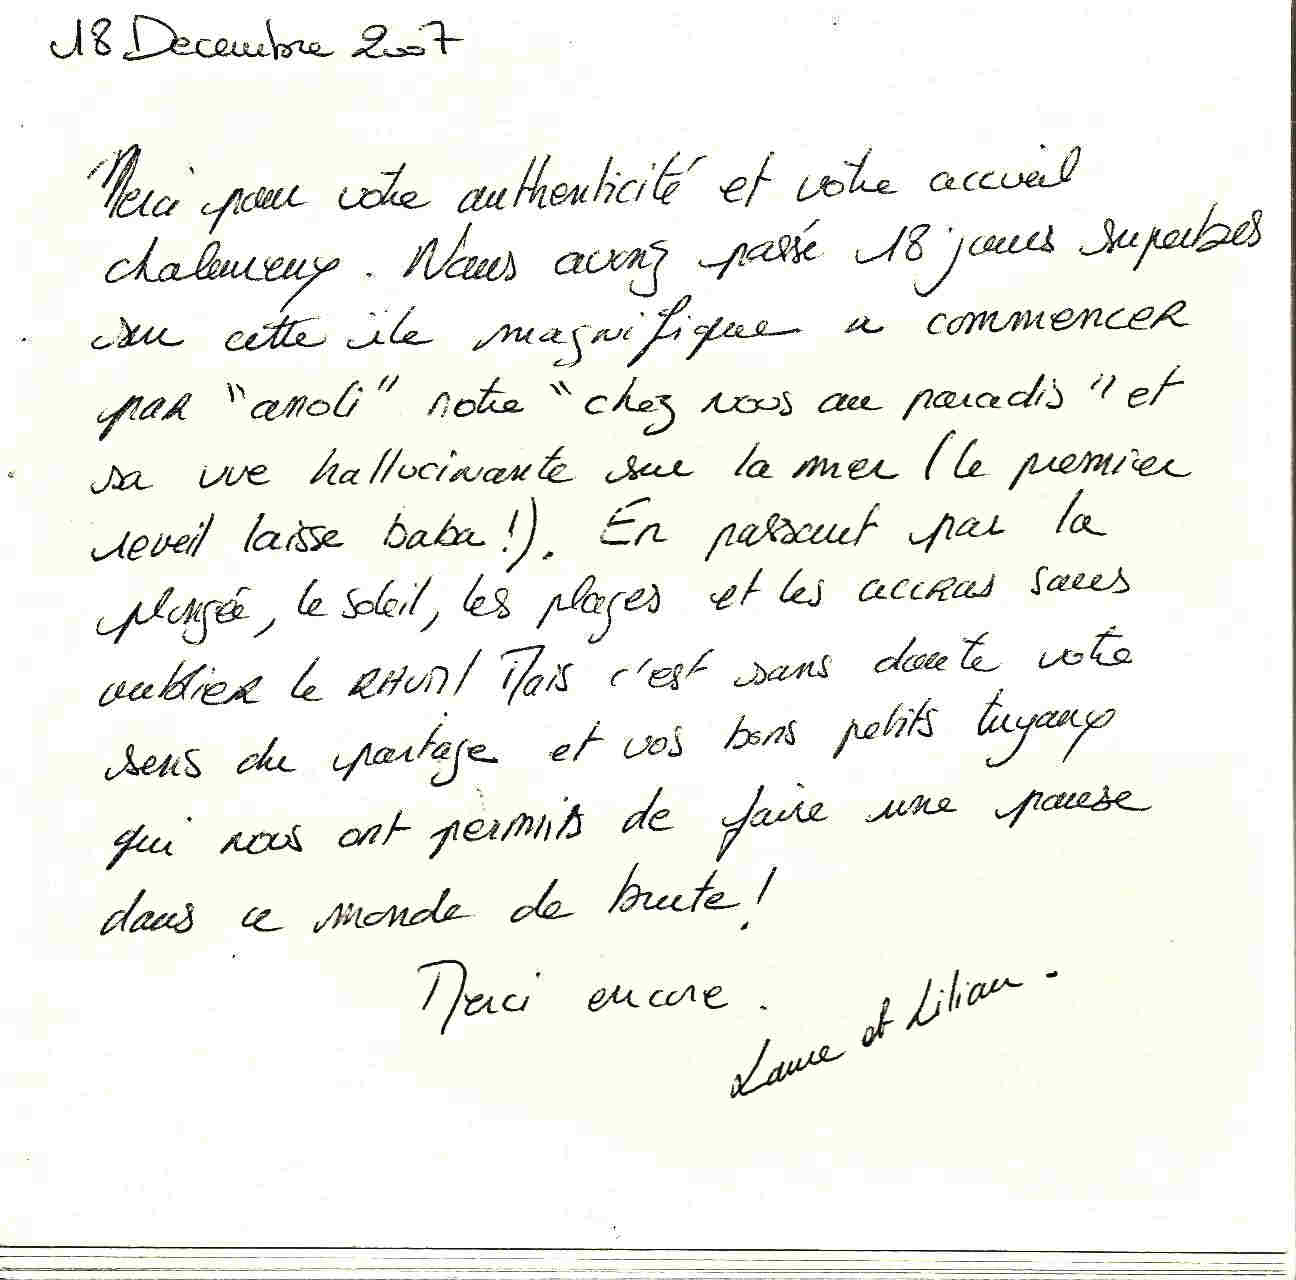 18 Decembre 2007
Merci pour votre authenticité et votre accueil
chaleureux. Nous avons passé 18 jours superbes
sur cette île magnifique a commencer
par "anoli" notre "chez nous au paradis" et
sa vue hallucinante sur la mer (le premier
reveil laisse baba!). En passant par la
plongée, le soleil, les plages et les accras sans
oublier le RHUM! Mais c'est sans doute votre
sens du partage et vos bons petits tuyaux
qui nous ont permis de faire une pause
dans ce monde de brute!
Merci encore.
Laure et Lilian -